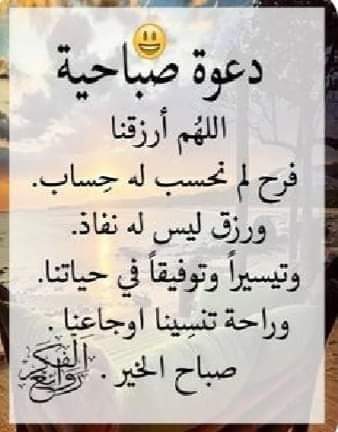 دعوة صباحية
اللهُم أرزقنا
فرح لم نحسب له حِساب.
ورزق ليس له نفاذ.
وتيسيراً وتوفيقاً في حياتنا.
وراحة تنسِينا اوجاعنا .
صباح الخير .
روائع الفكر